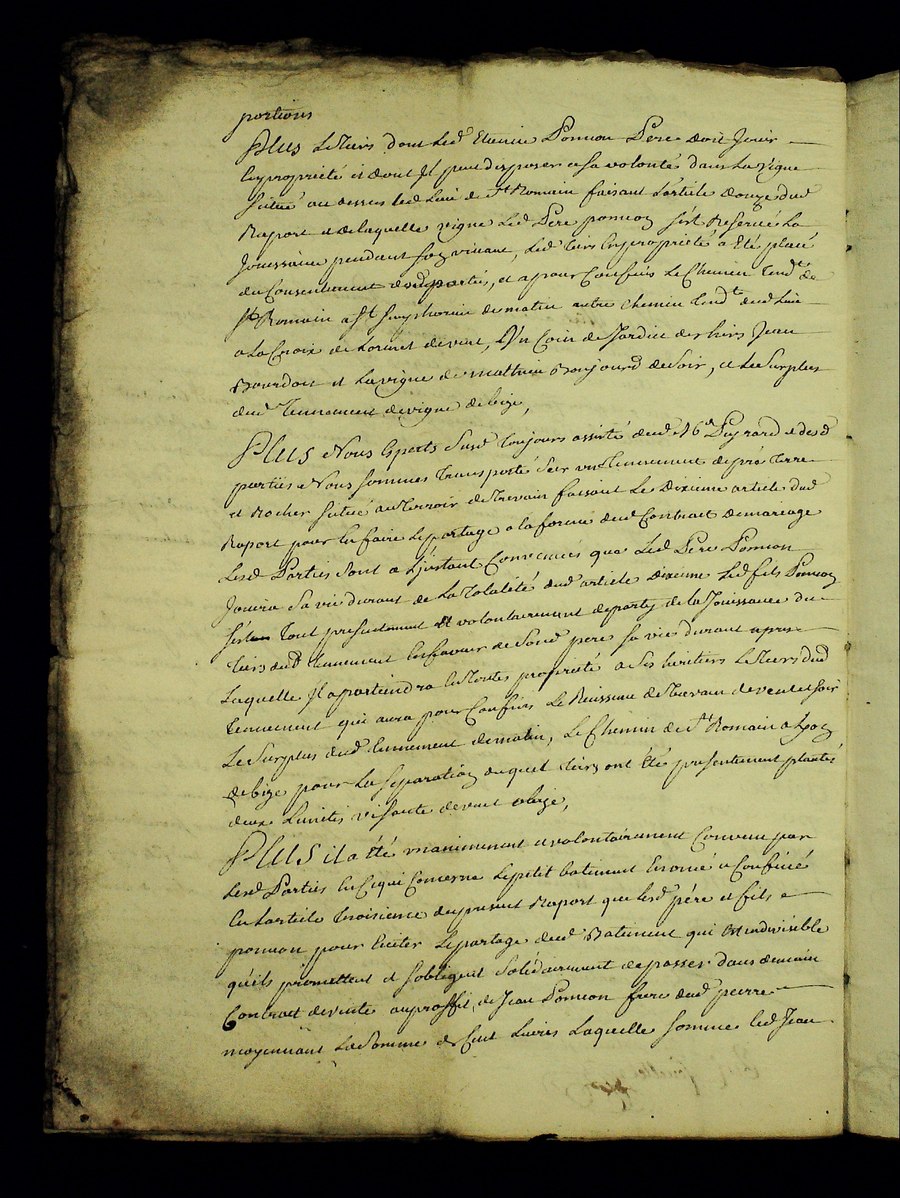 portions
Plus Le tiers dont Led. Etienne Ponson Pere doit Jouir
En propriété et dont Il peut disposer a Sa volonté dans La vigne
Située au dessus dud. Lieu de St. Romain faisant L'article douze dud.
Raport et de laquelle vigne Led. Pere ponson s'est Reservé La
Jouissance pendant son vivant, Led. tiers En propriété a Eté placé
du Consentement desd. parties, et a pour Confins Le Chemin tendt. de
St. Romain a St. Simphorien de matin autre chemin tendt. dud. Lieu
a La Croix de Lorme de vent, Un Coin de Jardin des hoirs Jean
Bourdon et La vigne de Mathieu Bonjour de Soir, et Le Surplus
dud. Tennement de vigne de bize,
Plus Nous Experts Susd. toujours assisté dud. Puyrard et desd.
parties Nous Sommes transporté Sur un Tennement de pré Terre
et Rocher Situé au Terroir de Trevain faisant Le Dixieme article dud.
Raport pour En faire Le partage a la forme dud. Contract de mareage
Lesd. Parties Sont a L'instant Convenues que Led. Pere Ponson
Jouira Sa vie durant de La Totalité dud. article Dixieme Led. fils Ponson
s'est Tout presentement et volontairement departy de la Jouissance du
tiers dud. Tennement En faveur de Sond. pere Sa vie durant apres
Laquelle Il apartiendra En Toutes propriété a Ses heritiers Le tiers dud.
Tennement qui aura pour Confins Le Ruisseau de Trevain de vent et Soir
Le Surplus dud. tennement de matin, Le Chemin de St. Romain a Lyon
de bize pour La Separation duquel tiers ont Eté presentement plantés
deux Limites visante de vent a bize,
Plus il a été unanimement et volontairement Convenu par
Lesd. Parties En Ce qui Concerne Le petit batiment Enoncé et Confiné
En L'article troisieme du present Raport que Lesd. père et fils
ponson pour Eviter Le partage dud. Batiment qui Est indivisible
qu'ils promettent et s'obligent Solidairement de passer dans demain
Contract de vente au proffit, de Jean Ponson frere dud. pierre
moyennant La Somme de Cent Livres Laquelle Somme Led. Jean